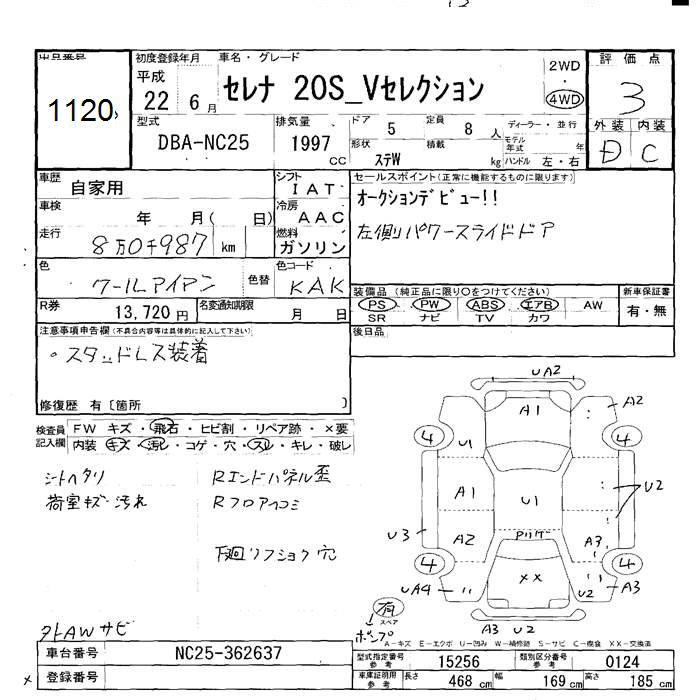 出品番号
1120
初度登録年月
平成
22 6月
車名・グレード
セレナ 20S_Vセレクション
2WD
・
4WD
評価点
3
外装 内装
D C
型式
DBA-NC25
排気量
1997
CC
ドア
5
定員
8 人
形状
ステW
積載
kg
ディーラー・並行
モデル年式 年
ハンドル 左・右
車歴
自家用
シフト
IAT
車検
年 月( 日)
冷房
AAC
走行
8万0千987 km
燃料
ガソリン
色
クールアイアン
色替
色コード
KAK
R券
13,720円
名変通知期限
月 日
セールスポイント(正常に機能するものに限ります)
オークションデビュー!!
左側パワースライドドア
装備品(純正品に限り○をつけてください)
PS PW ABS エアB AW
SR ナビ TV カワ
新車保証書
有・無
後日品
注意事項申告欄(不具合内容等は具体的に記入して下さい)
・スタッドレス装着
修復歴 有〔箇所 〕
検査員記入欄
FW キズ・飛石・ヒビ割・リペア跡・×要
内装 キズ・汚れ・コゲ・穴・スレ・キレ・破し
シートヘタリ
荷室キズ・汚れ
Rエンドパネル歪
Rフロア凹コミ
下廻リフショク穴
外AWサビ
UA2
A1
A2
4
4
U1
A1
U1
U2
U3
A2
A3
4
4
UA4
××
U2
A3
A3 U2
有
スペア
A-キズ E-エクボ U-凹み W-補修跡 S-サビ C-腐食 XX-交換済
車台番号
NC25-362637
登録番号
型式指定番号
参考
15256
類別区分番号
参考
0124
車庫証明用
参考
長さ 468 cm
幅 169 cm
高さ 185 cm